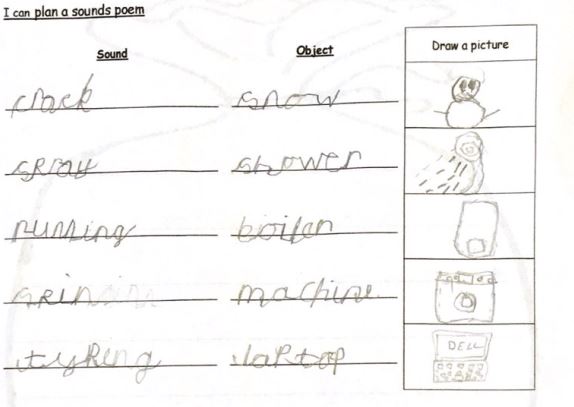 I can plan a sounds poem
Sound Object Draw a picture
crack snow
spray shower
running boiler
machine
typing laptop
DELL